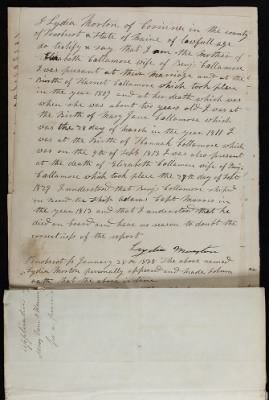 I Lydia Morton of Corinna in the county
of Penobscot & State of Maine of lawfull age
do testify & say that I am the mother of
Elizabeth Collamore wife of Benj. Collamore
I was present at their marriage and at the
Birth of Harriet Collamore which took place
in the year 1809 & at her death which was
when she was about two years old I was at
the Birth of Mary Jane Collamore which
was the 28 day of March in the year 1811 I
was at the Birth of Hannah Collamore which
was on the 9th of Sept 1813 I was also present
at the death of Elizabeth Collamore wife of Benj.
Collamore which took place the 29th day of Sept
1829 I understood that Benj. Collamore shiped
on Board the Ship Adams Capt Morris in
the year 1813 and that I understood that he
died on board and have no reason to doubt the
correctness of the report
Lydia Morton
Penobscot ss January 28th 1838 The above named
Lydia Morton personally appeared and made solemn
oath that the above is true
application
Mary Jane & Hannah
for a